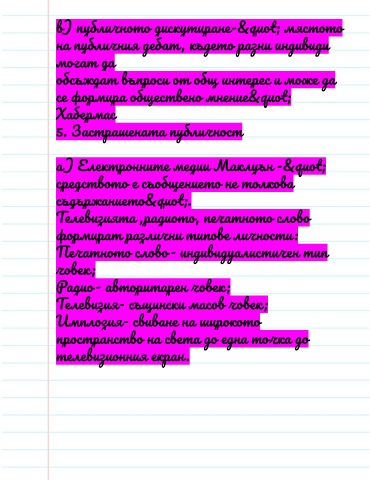 в) публичното дискутиране-&quot; мястото
на публичния дебат, където разни индивиди
могат да
обсъждат въпроси от общ интерес и може да
се формира обществено мнение&quot;
Хабермас
5. Застрашената публичност
а) Електронните медии Маклуън -&quot;
средството е съобщението не толкова
съдържанието&quot;.
Телевизията ,радиото, печатното слово
формират различни типове личности:
Печатното слово- индивидуалистичен тип
човек;
Радио- авторитарен човек;
Телевизия- същински масов човек;
Имплозия- свиване на широкото
пространство на света до една точка до
телевизионния екран.